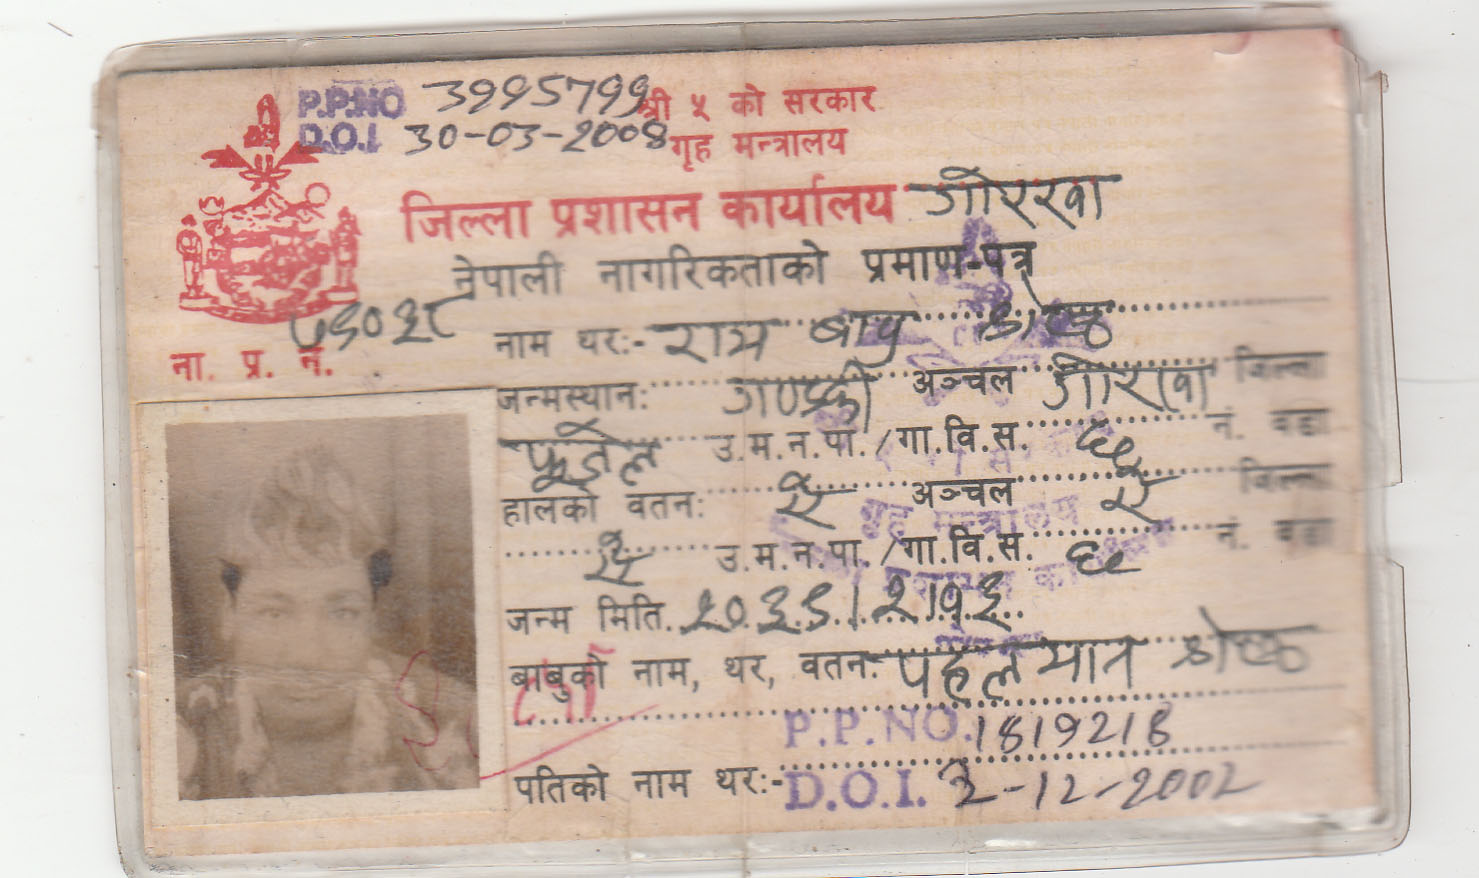 P.P.NO 3995799 श्री ५ को सरकार
D.O.I 30-03-2008 गृह मन्त्रालय
जिल्ला प्रशासन कार्यालय गोरखा
नेपाली नागरिकताको प्रमाण-पत्र
ना. प्र. नं.
नाम थरः- राम बाबु श्रेष्ठ
जन्मस्थानः गण्डकी अञ्चल गोरखा जिल्ला
फूजेल उ.म.न.पा./गा.वि.स. नं. वडा
हालको वतनः ऐ अञ्चल ऐ जिल्ला
ऐ उ.म.न.पा./गा.वि.स. ६ नं. वडा
जन्म मिति. २०३६।२।१३
बाबुको नाम, थर, वतनः- पहलमान श्रेष्ठ
P.P.NO. 1819218
पतिको नाम थरः- D.O.I. 2-12-2002
गृह मन्त्रालय